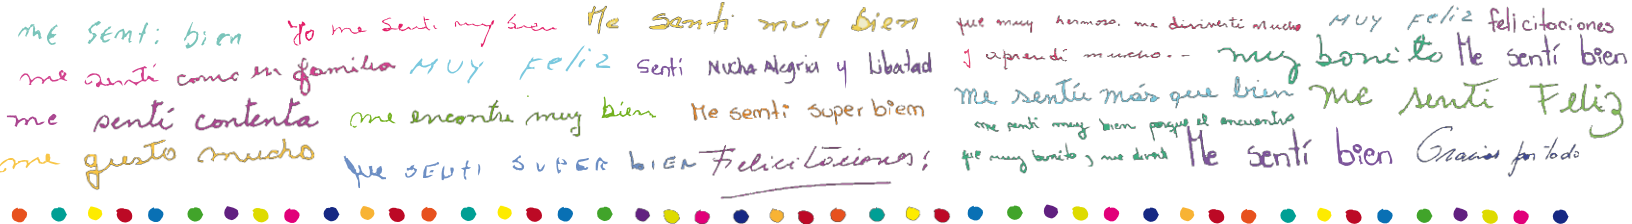 me sentí bien
Yo me senti muy bien
Me senti muy bien
fue muy hermoso. me divinerti mucho
y aprendí mucho...
MUY FELIZ
felicitaciones
me sentí como en familia
MUY FELIZ
Sentí Mucha Alegria y Libertad
muy bonito
Me sentí bien
me sentí contenta
me encontre muy bien
Me semti super biem
me sentíu más que bien
me senti Feliz
me gusto mucho
me SENTI SUPER BIEN
Felicitaciones!
me senti muy bien porque el encuentro
fue muy bonito, me diverti
Me sentí bien
Gracias por todo